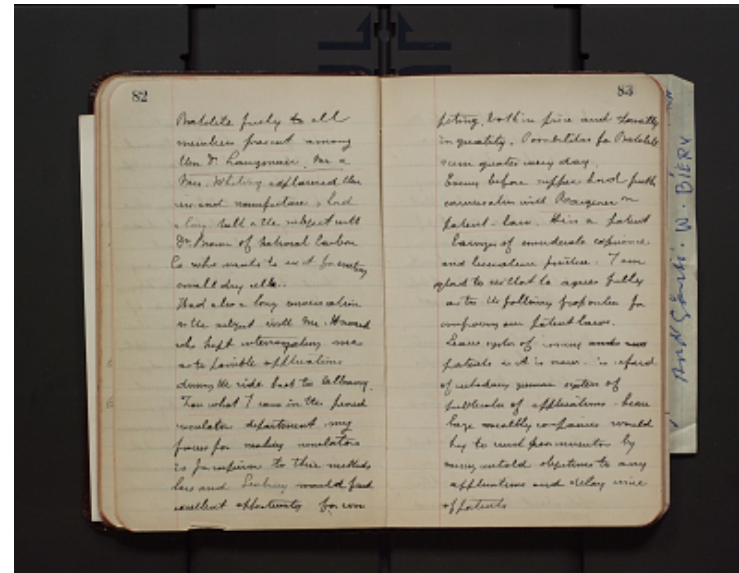 82
Bakelite freely to all
members present among
them Dr. Langmuir. Mr &
Mrs. Whitney explained the
use and manufacture. had
a long talk on the subject with
Dr. Brown of National Carbon
Co who wants to use it for making
small dry cells.
Had also a long conversation
on the subject with Mr. Howard
who kept interrogating me
as to possible applications
during the ride back to
From what I saw in the
insulator department my
process for making insulators
is far superior to their methods
here and would find
excellent opportunity for com
83
peting, both in price and
in quality. Possibilities for Bakelite
seem greater every day.
Evening before supper had
conversation with on
patent-law. He is a patent
lawyer of considerable experience
and practice. I am
glad to see that he agrees fully
as to the following proposition for
improving our patent laws.
Leave system of issuing
patents as it is now. is afraid
of introducing german system of
publication of applications because
large wealthy companies would
try to poor inventor by
untold objections to any
applications and delay issue
of patents
And W. BIERY